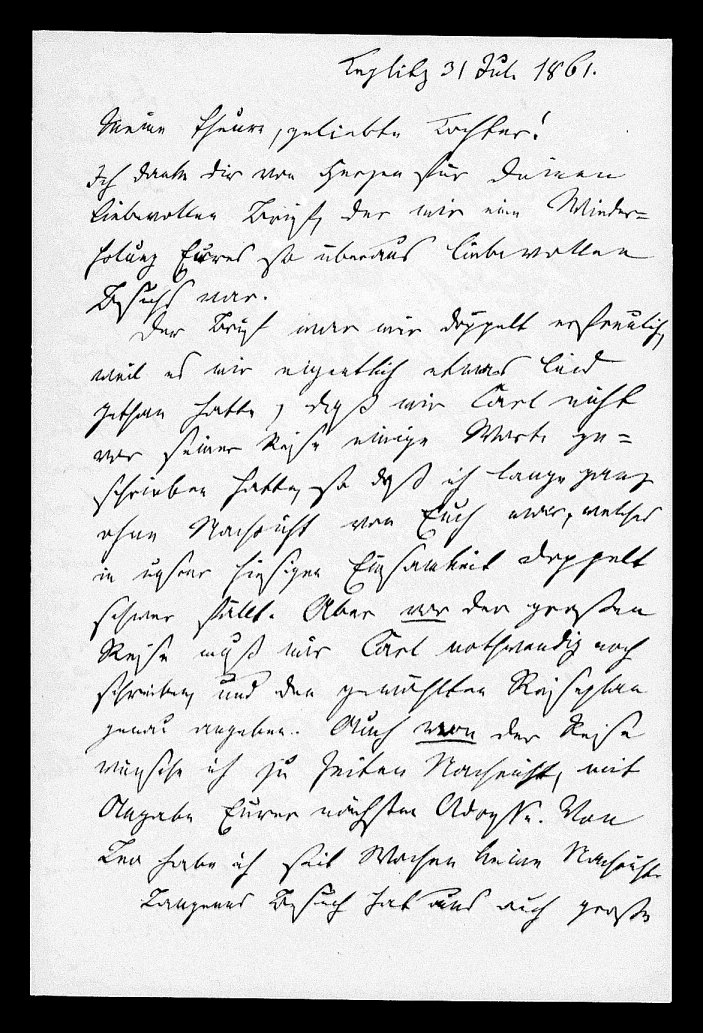 Teplitz 31 Jul. 1861.
Meine theure, geliebte Tochter!
Ich danke Dir von Herzen für Deinen
liebevollen Brief, der mir eine Wieder=
holung Eures so überaus liebevollen
Besuchs war.
Der Brief war mir doppelt erfreulich,
weil es mir eigentlich etwas leid
gethan hatte, daß mir Carl nicht
vor seiner Reise einige Worte ge=
schrieben hatte, so daß ich lange ganz
ohne Nachricht von Euch war, welches
in unserer hiesigen Einsamkeit doppelt
schwer fällt. Aber vor der großen
Reise muß mir Carl nothwendig noch
schreiben, und den gewählten Reiseplan
genau angeben. Auch von der Reise
wünsche ich zu Zeiten Nachricht, mit
Angabe Eurer nächsten Adresse. Von
Leo habe ich seit Wochen keine Nachricht.
Besuch hat uns auch große